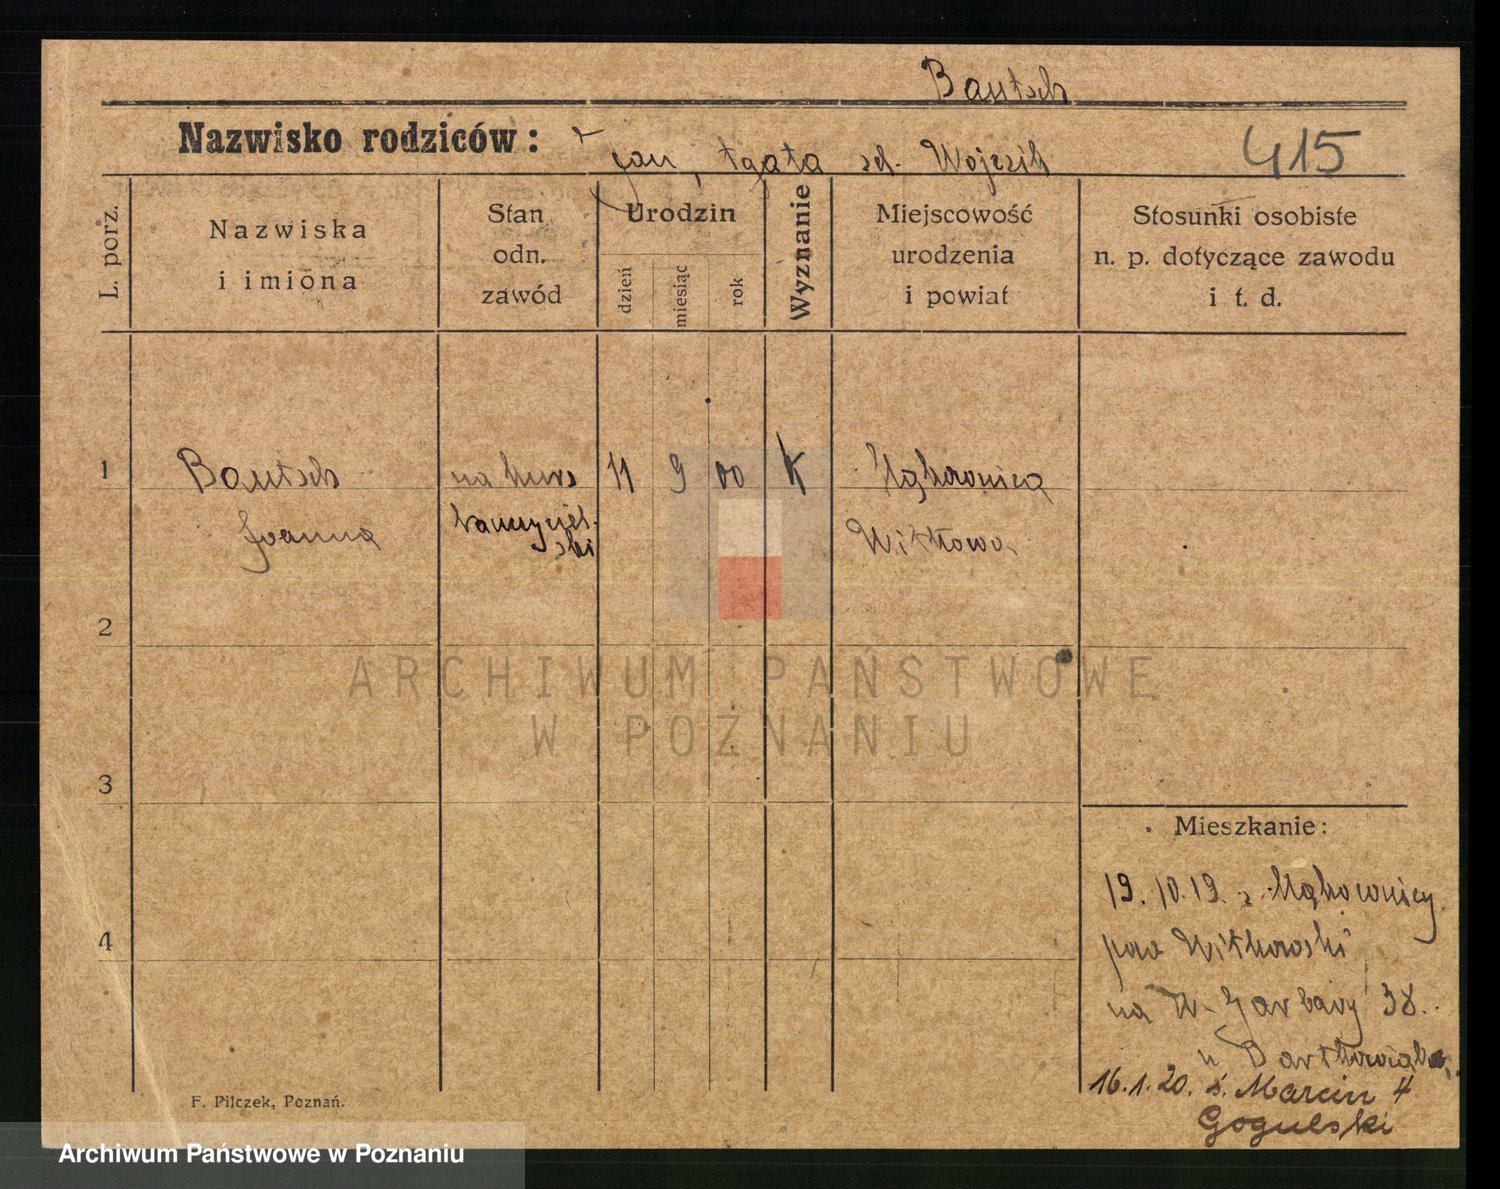 Bautsch
Nazwisko rodziców:
Jan, Agata Wojcik
415
L. porz.
Nazwiska
i imiona
Stan
odn.
zawód
Urodzin
dzień
miesiąc
rok
Wyznanie
Miejscowość
urodzenia
i powiat
Stosunki osobiste
n. p. dotyczące zawodu
i t. d.
1
Bautsch
na kurs
11 9 00 K
Joanna
nauczyciel-
ski
Witkowo
2
ARCHIWUM PAŃSTWOWE
W POZNANIU
3
Mieszkanie:
19. 10. 19. z
4
pow Witkowski
na W. Garbary 38.
u
16. 1. 20. ś. Marcin 4
Gogulski
F. Pilczek, Poznań.
Archiwum Państwowe w Poznaniu